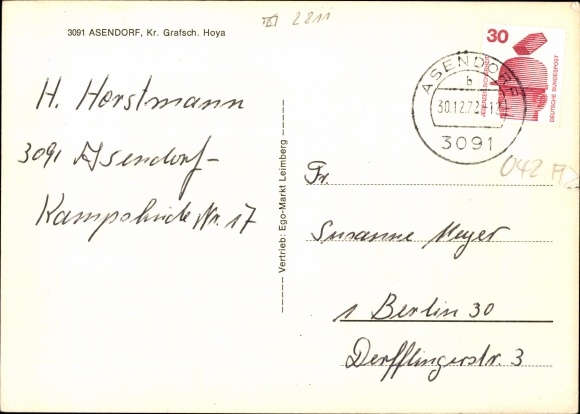 3091 ASENDORF, Kr. Grafsch. Hoya
2811
H. Horstmann
3091 Asendorf-
Kampsheide Nr. 17
Vertrieb: Ego-Markt Leimberg
30
DEUTSCHE BUNDESPOST
ASENDORF
b
30.12.72-12
3091
042 A
Fr.
Susanne Meyer
1 Berlin 30
Derfflingerstr. 3